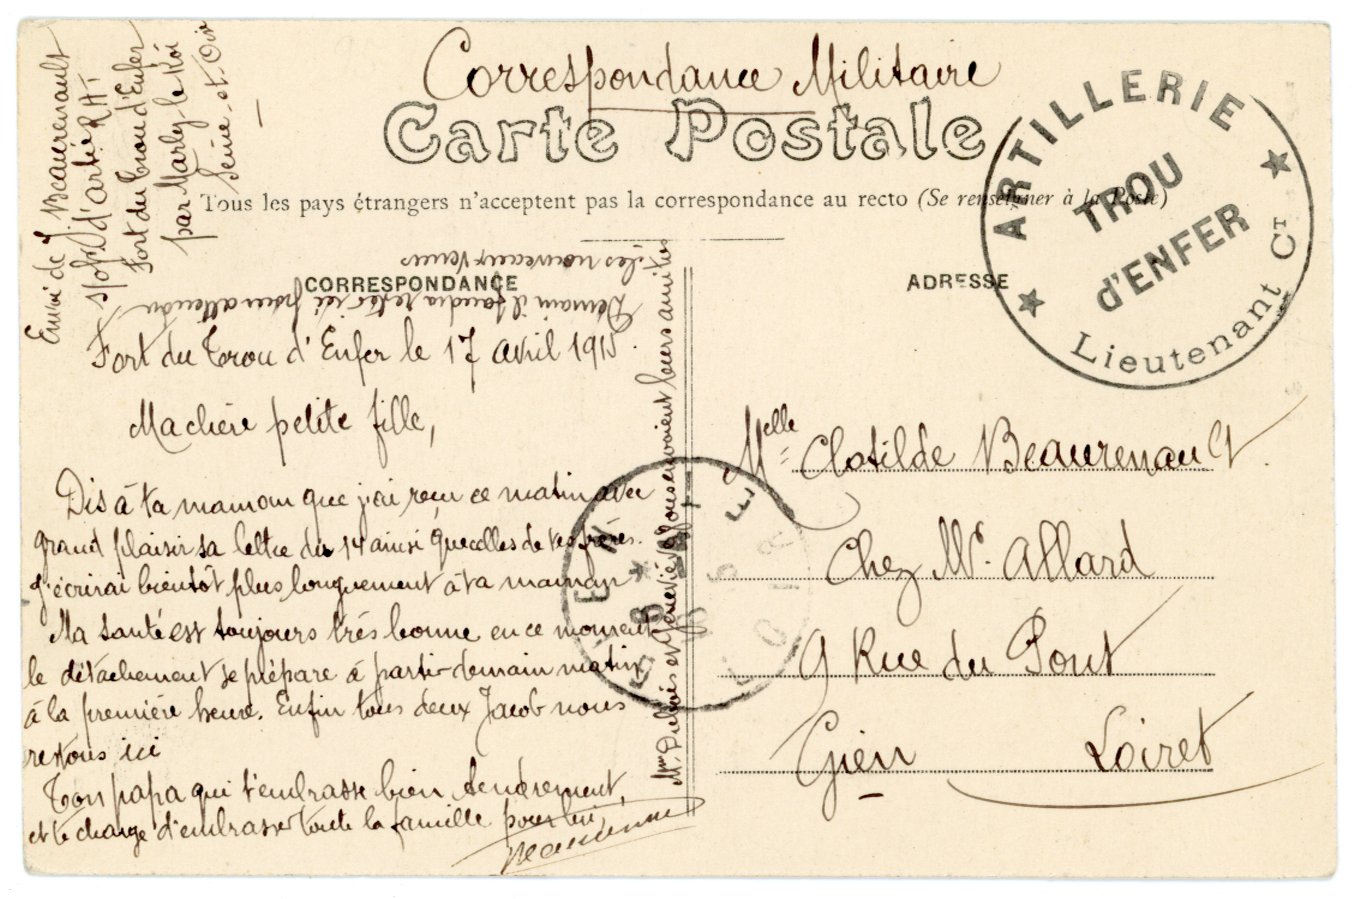 Correspondance Militaire
Carte Postale
Tous les pays étrangers n'acceptent pas la correspondance au recto (Se renseigner à la Poste)
ARTILLERIE
TROU
d'ENFER
Lieutenant Ct
Envoi de J. Beaurenault
d'artie R.A.T
Fort du Trou d'Enfer
par Marly le Roi
Seine-et-Oise
CORRESPONDANCE
ADRESSE
Demain il faudra rester ici pour attendre
les nouveaux venus
Fort du Trou d'Enfer le 17 avril 1915.
Ma chère petite fille,
Dis à ta maman que j'ai reçu ce matin avec
grand plaisir sa lettre du 14 ainsi que celles de tes frères.
J'écrirai bientôt plus longuement à ta maman
Ma santé est toujours très bonne en ce moment
le détachement se prépare à partir demain matin
à la première heure. Enfin tous deux Jacob nous
restons ici
Ton papa qui t'embrasse bien tendrement,
et te charge d'embrasser toute la famille pour lui,
Beaurenault
Mme Dubois et Geneviève vous envoient leurs amitiés
GIEN
LOIRET
Melle Clotilde Beaurenault
Chez Mr. Allard
9 Rue du Pont
Gien Loiret